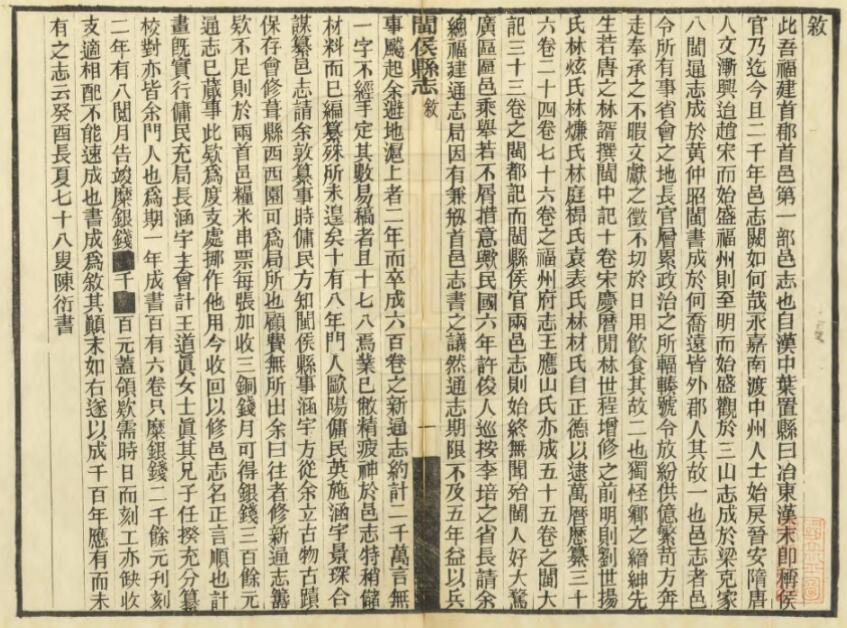 敘
此吾福建首郡首邑第一部邑志也自漢中葉置縣曰冶東漢末即稱侯
官乃迄今且二千年邑志闕如何哉永嘉南渡中州人士始戾晉安隋唐
人文漸興迨趙宋而始盛福州則至明而始盛觀於三山志成於梁克家
八閩通志成於黄仲昭閩書成於何喬遠皆外郡人其故一也邑志者邑
令所有事省會之地長官層累政治之所輻輳號令放紛供億繁苛方奔
走奉承之不暇文獻之徵不切於日用飲食其故二也獨怪鄉之縉紳先
生若唐之林諝撰閩中記十卷宋慶曆閒林世程增修之前明則劉世揚
氏林炫氏林燫氏林庭㭿氏袁表氏林材氏自正德以逮萬曆歷纂三十
六卷二十四卷七十六卷之福州府志王應山氏亦成五十五卷之閩大
記三十三卷之閩都記而閩縣侯官兩邑志則始終無聞殆閩人好大驁
廣區區邑乘舉若不屑措意歟民國六年許俊人巡按李培之省長請余
總福建通志局因有兼辦首邑志書之議然通志期限不及五年益以兵
閩侯縣志 敘
一
事飈起余避地滬上者二年而卒成六百卷之新通志約計二千萬言無
一字不經手定其數易稿者且十七八焉業已敝精疲神於邑志特稍儲
材料而已編纂殊所未遑矣十有八年門人歐陽傭民英施涵宇景琛合
謀纂邑志請余敦纂事時傭民方知閩侯縣事涵宇方從余立古物古蹟
保存會修葺縣西西園可爲局所也顧費無所出余曰往者修新通志籌
欵不足則於兩首邑糧米串票每張加收三銅錢月可得銀錢三百餘元
通志已蕆事此欵爲度支處挪作他用今收回以修邑志名正言順也計
畫既實行傭民充局長涵宇主會計王道眞女士眞其兄子任揆充分纂
校對亦皆余門人也爲期一年成書百有六卷只糜銀錢二千餘元刋刻
二年有八閱月告竣糜銀錢千百元蓋領欵需時日而刻工亦缺收
支適相配不能速成也書成爲敘其顛末如右遂以成千百年應有而未
有之志云癸酉長夏七十八叟陳衍書